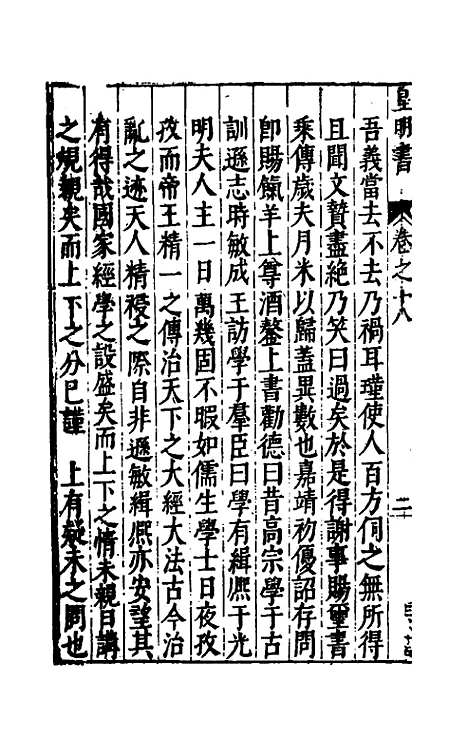 皇明書 卷之十八 二十
吾義當去不去乃禍耳瑾使人百方伺之無所得
且聞文贄盡絶乃笑曰過矣於是得謝事賜璽書
乘傳歲夫月米以歸蓋異數也嘉靖初優詔存問
卽賜餼羊上尊酒鏊上書勸德曰昔高宗學于古
訓遜志時敏成王訪學于羣臣曰學有緝熈于光
明夫人主一日萬幾固不暇如儒生學士日夜孜
孜而帝王精一之傳治天下之大經大法古今治
亂之迹天人精祲之際自非遜敏緝熈亦安望其
有得哉國家經學之設盛矣而上下之情未親日講
之規親矣而上下之分已謹 上有疑未之問也